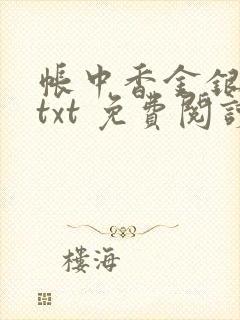 帳中香金銀
txt 免費閱讀
樓海